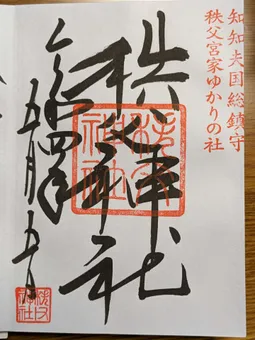 知知夫国総鎮守
秩父宮家ゆかりの社
秩父神社
令和四年
五月五日
秩父
神社
秩父
神社